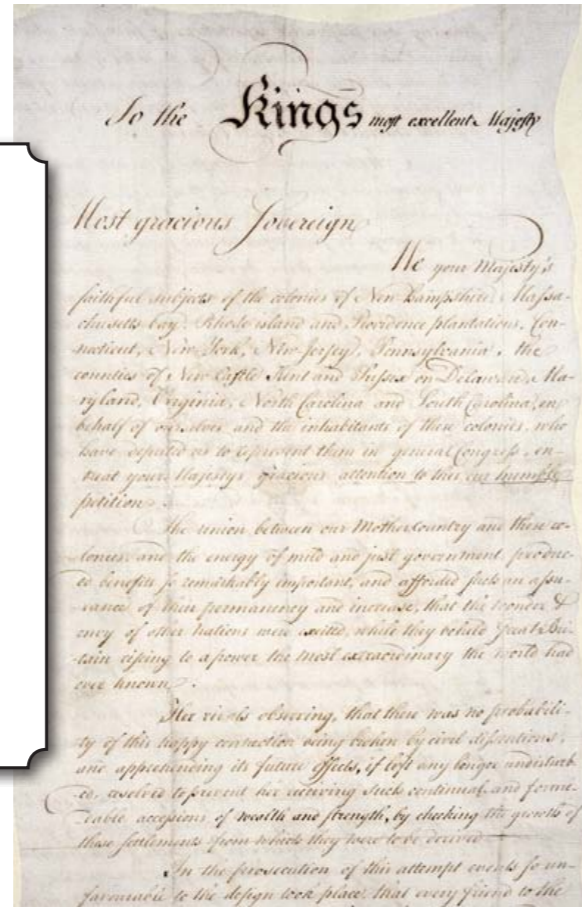 To the Kings most excellent Majesty
Most gracious Sovereign
We your Majesty's
faithful subjects of the colonies of New Hampshire, Massa-
chusetts bay, Rhode island and Providence plantations, Con-
necticut, New York, New Jersey, Pennsylvania, the
counties of New Castle Kent and Sussex on Delaware, Ma-
ryland, Virginia, North Carolina and South Carolina, in
behalf of ourselves and the inhabitants of these colonies, who
have deputed us to represent them in general Congress, en-
treat your Majestys gracious attention to this our humble
petition.
The union between our Mother Country and these co-
lonies, and the energy of mild and just government, produc-
ed benefits so remarkably important, and afforded such an assu-
rance of their permanency and increase, that the wonder &
envy of other Nations were excited, while they beheld Great Bri-
tain riseing to a power the most extraordinary the world had
ever known.
Her rivals observing, that there was no probabili-
ty of this happy connection being broken by civil dissentions,
and apprehending its future effects, if left any longer undisturb-
ed, resolved to prevent her receiving such continual and formi-
dable accessions of wealth and strength, by checking the growth of
these settlements from which they were to be derived.
In the prosecution of this attempt events so un-
favourable to the design took place, that every friend to the